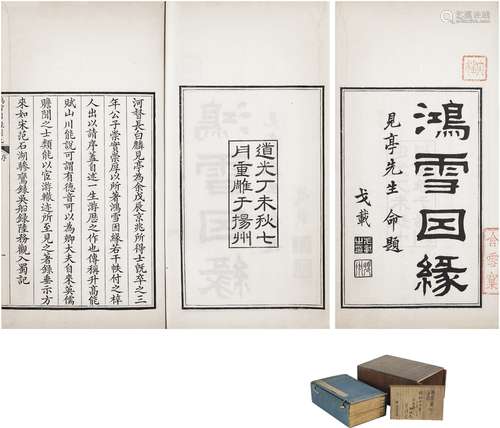 鴻雪因緣
見亭先生命題
戈載
道光丁未秋七
月重雕于揚州
河督長白麟見亭為余戊辰京兆所得士旣卒之三
年公子崇實崇厚以所著鴻雪因緣若干帙付之梓
人出以請序蓋自述一生游歷之作也傳稱升高能
賦山川能說可謂有德音可以為卿大夫自來英儒
贍聞之士類能以宦游轍迹所至見之著錄垂示方
來如宋范石湖驂鸞錄吳船錄陸務觀入蜀記